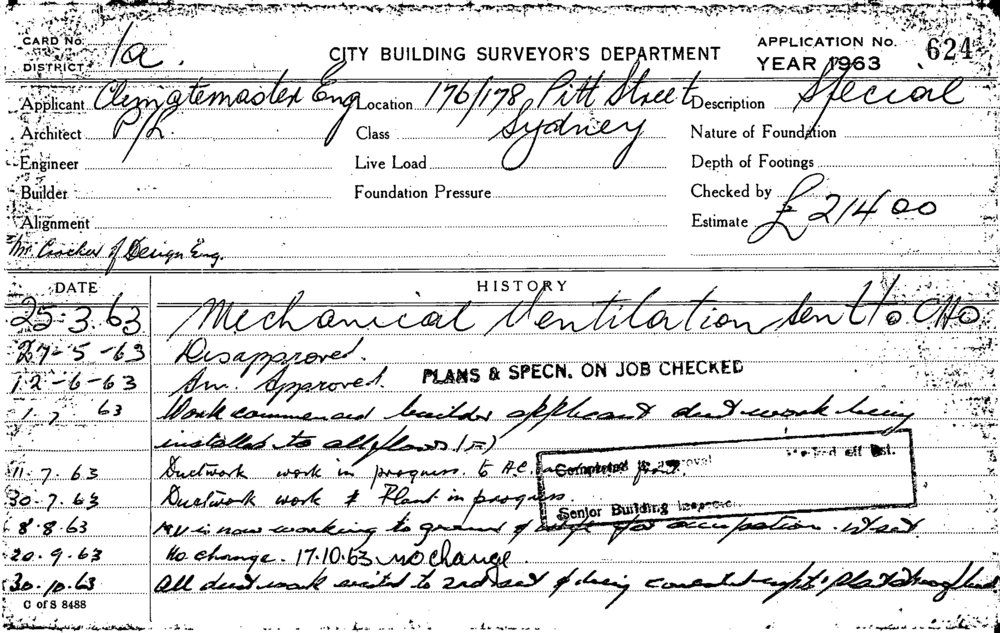 CARD No. 1a. CITY BUILDING SURVEYOR'S DEPARTMENT APPLICATION No. 624
DISTRICT YEAR 1963
Applicant Clymatemaster Eng Location 176/178 Pitt Street Description Special
Architect P/L. Class Sydney Nature of Foundation
Engineer Live Load Depth of Footings
Builder Foundation Pressure Checked by
Alignment Estimate £21400
Mr. Crocker of Design Eng.
DATE HISTORY
25-3.63 Mechanical Ventilation sent to CHO.
27-5-63 Disapproved.
12-6-63 Am. Approved. PLANS & SPECN. ON JOB CHECKED
1 7 63 Work commenced builder applicant duct work being
installed to all floors
11.7.63 Ductwork work in progress. to A.C. Completed
30.7.63 Ductwork work & Plant in progress.
Senior Building
8.8.63 MV is now working to ground for occupation.
20.9.63 No change. 17.10.63 no change
30.10.63 All duct work to 2nd & being
C of S 8488